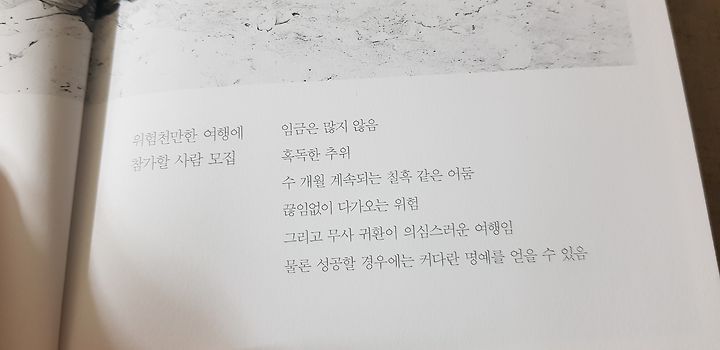 위험천만한 여행에
참가할 사람 모집
임금은 많지 않음
혹독한 추위
수 개월 계속되는 칠흑 같은 어둠
끊임없이 다가오는 위험
그리고 무사 귀환이 의심스러운 여행임
물론 성공할 경우에는 커다란 명예를 얻을 수 있음